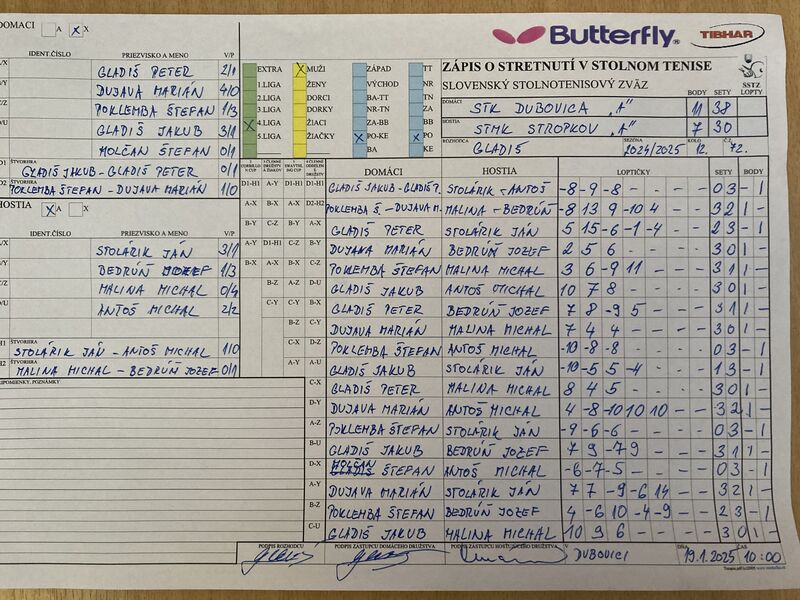 DOMACI A X X
Butterfly® TIBHAR
IDENT.ČÍSLO PRIEZVISKO A MENO V/P
A/X GLADIŠ PETER 2/1
DUJAVA MARIÁN 4/0
POKLEMBA ŠTEFAN 1/3
D/U GLADIŠ JAKUB 3/1
MOLČAN ŠTEFAN 0/1
D1 ŠTVORHRA GLADIŠ JAKUB - GLADIŠ PETER 0/1
D2 ŠTVORHRA POKLEMBA ŠTEFAN - DUJAVA MARIÁN 1/0
HOSTIA A X X
IDENT.ČÍSLO PRIEZVISKO A MENO V/P
A/X STOLÁRIK JÁN 3/1
BEDRÚŇ JOZEF 1/3
MALINA MICHAL 0/4
D/U ANTOŠ MICHAL 2/2
H1 ŠTVORHRA STOLÁRIK JÁN - ANTOŠ MICHAL 1/0
H2 ŠTVORHRA MALINA MICHAL - BEDRÚŇ JOZEF 0/1
PRIPOMIENKY, POZNÁMKY
EXTRA X MUŽI ZÁPAD TT
1.LIGA ŽENY VÝCHOD NR
2.LIGA DORCI BA-TT TN
3.LIGA DORKY NR-TN ZA
X 4.LIGA ŽIACI ZA-BB BB
5.LIGA ŽIAČKY X PO-KE X PO
BA KE
ZÁPIS O STRETNUTÍ V STOLNOM TENISE
SLOVENSKÝ STOLNOTENISOVÝ ZVÄZ SSTZ
BODY SETY LOPTY
DOMÁCI STK DUBOVICA „A" 11 38
HOSTIA STMK STROPKOV „A" 7 30
ROZHODCA GLADIŠ SEZÓNA 2024/2025 KOLO 12. Č.Z. 72.
DOMÁCI HOSTIA LOPTIČKY SETY BODY
D1-H1 A-Y D1-H1 D1-H1 GLADIŠ JAKUB - GLADIŠ P. STOLÁRIK - ANTOŠ -8 -9 -8 - - 0 3 - 1
A-X B-X A-X D2-H2 POKLEMBA Š. - DUJAVA M. MALINA - BEDRÚŇ -8 13 9 -10 4 3 2 1 -
B-Y C-Z B-Y A-X GLADIŠ PETER STOLÁRIK JÁN 5 15 -6 -1 -4 2 3 - 1
A-Y D1-H1 C-Z B-Y DUJAVA MARIÁN BEDRÚŇ JOZEF 2 5 6 - - 3 0 1 -
B-X A-X B-X C-Z POKLEMBA ŠTEFAN MALINA MICHAL 3 6 -9 11 - 3 1 1 -
B-Z A-Z D-U GLADIŠ JAKUB ANTOŠ MICHAL 10 7 8 - - 3 0 1 -
C-Y C-Y B-X GLADIŠ PETER BEDRÚŇ JOZEF 7 8 -9 5 - 3 1 1 -
B-Z C-Y DUJAVA MARIÁN MALINA MICHAL 7 4 4 - - 3 0 1 -
C-X D-Z POKLEMBA ŠTEFAN ANTOŠ MICHAL -10 -8 -8 - - 0 3 - 1
A-Y A-U GLADIŠ JAKUB STOLÁRIK JÁN -10 -5 5 -4 - 1 3 - 1
C-X GLADIŠ PETER MALINA MICHAL 8 4 5 - - 3 0 1 -
D-Y DUJAVA MARIÁN ANTOŠ MICHAL 4 -8 -10 10 10 - - 3 2 1 -
A-Z POKLEMBA ŠTEFAN STOLÁRIK JÁN -9 -6 -6 - - 0 3 - 1
B-U GLADIŠ JAKUB BEDRÚŇ JOZEF 7 9 -7 9 - 3 1 1 -
D-X MOLČAN ŠTEFAN ANTOŠ MICHAL -6 -7 -5 - - 0 3 - 1
A-Y DUJAVA MARIÁN STOLÁRIK JÁN 7 7 -9 -6 14 - - 3 2 1 -
B-Z POKLEMBA ŠTEFAN BEDRÚŇ JOZEF 4 -6 10 -4 -9 - - 2 3 - 1
C-U GLADIŠ JAKUB MALINA MICHAL 10 9 6 - - 3 0 1 -
PODPIS ROZHODCU PODPIS ZÁSTUPCU DOMÁCEHO DRUŽSTVA PODPIS ZÁSTUPCU HOSŤUJÚCEHO DRUŽSTVA V DUBOVICI DŇA 19.1.2025 ČAS 10:00